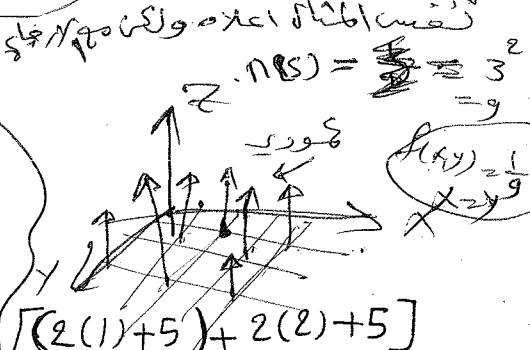 نفس المثال اعلاه ولكن مع الارجاع
n(S) = = 3²
= 9
Z
f(x,y) = 1/9
X
Y
[(2(1)+5)+2(2)+5]